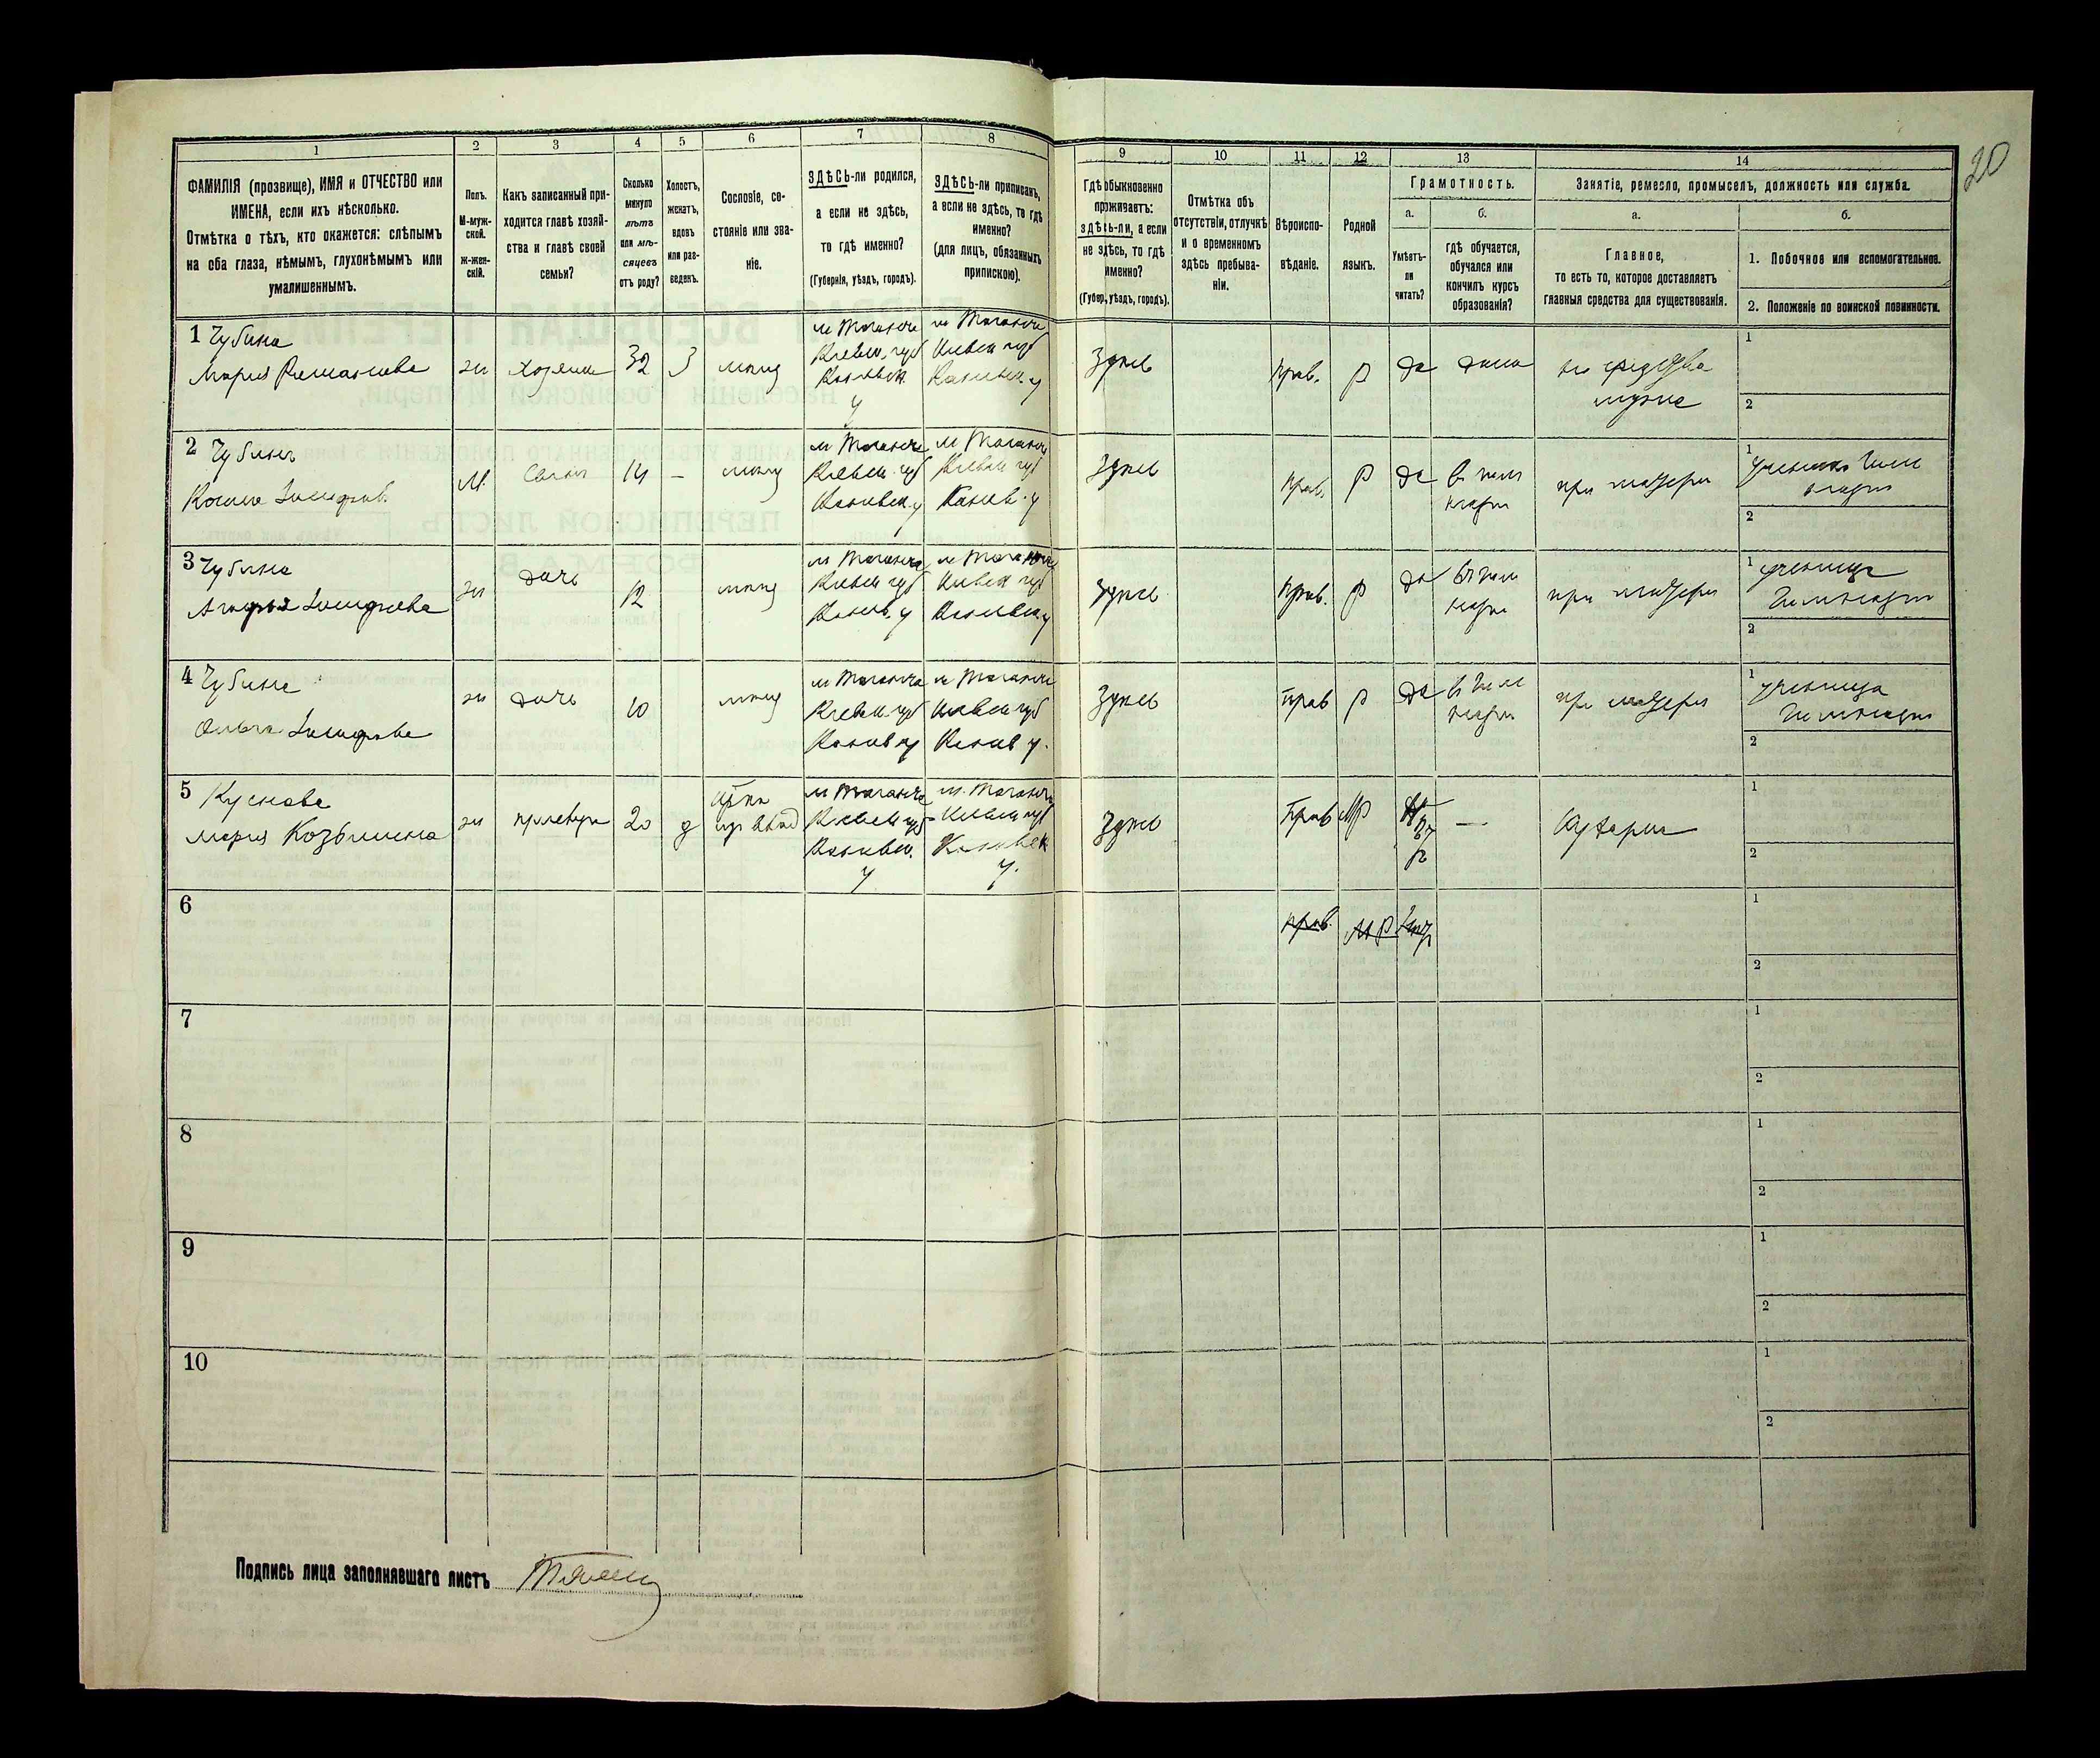 20
1
2
3
4
5
6
7
8
9
10
11
12
13
14
ФАМИЛІЯ (прозвище), ИМЯ и ОТЧЕСТВО или
ИМЕНА, если ихъ нѣсколько.
Отмѣтка о тѣхъ, кто окажется: слѣпымъ
на оба глаза, нѣмымъ, глухонѣмымъ или
умалишеннымъ.
Полъ.
М-муж-
ской.
Ж-жен-
скій.
Какъ записанный при-
ходится главѣ хозяй-
ства и главѣ своей
семьи?
Сколько
минуло
лѣтъ
или мѣ-
сяцевъ
отъ роду?
Холостъ,
женатъ,
вдовъ
или раз-
веденъ.
Сословіе, со-
стояніе или зва-
ніе.
ЗДѢСЬ-ли родился,
а если не здѣсь,
то гдѣ именно?
(Губернія, уѣздъ, городъ).
ЗДѢСЬ-ли приписанъ,
а если не здѣсь, то гдѣ
именно?
(для лицъ, обязанныхъ
припискою).
Гдѣ обыкновенно
проживаетъ:
здѣсь-ли, а если
не здѣсь, то гдѣ
именно?
(Губер., уѣздъ, городъ).
Отмѣтка объ
отсутствіи, отлучкѣ
и о временномъ
здѣсь пребыва-
ніи.
Вѣроиспо-
вѣданіе.
Родной
языкъ.
Грамотность.
а.
Умѣетъ-
ли
читать?
б.
гдѣ обучается,
обучался или
кончилъ курсъ
образованія?
Занятіе, ремесло, промыселъ, должность или служба.
а.
Главное,
то есть то, которое доставляетъ
главныя средства для существованія.
б.
1. Побочное или вспомогательное.
2. Положеніе по воинской повинности.
1 Чубина
Марія
жн
хозяика
32
З
м Таганча
Кіевск. губ
Каневск.
у
м Таганча
Кіевск губ
Каневск. у
Здѣсь
Прав.
Р
да
дома
на средства
мужа
1
2
2 Чубинъ
М.
Сынъ
14
–
м Таганча
Кіевск. губ
Каневск. у
м Таганча
Кіевск губ
Канев. у
Здѣсь
Прав.
Р
да
въ гим
назіи
при матери
1
2
3 Чубина
жн
дочь
12
м Таганча
Кіевск губ
Канев. у
м Таганча
Кіевск губ
Каневск. у
Здѣсь
Прав.
Р
да
въ гим
назіи
при матери
1 ученица
Гимназіи
2
4 Чубина
Ольга
жн
дочь
10
м Таганча
Кіевск. губ
Канев у
м Таганча
Кіевск губ
Канев у.
Здѣсь
Прав
Р
да
въ гим
назіи
при матери
1 ученица
Гимназіи
2
5
Марія Козьмина
жн
прислуга
20
д
м Таганча
Кіевск губ
Каневск.
у
м. Таганча
Кіевск губ
Каневск
у.
Здѣсь
Прав
МР
—
Кухарка
1
2
6
прав.
МР
1
2
7
1
2
8
1
2
9
1
2
10
1
2
Подпись лица заполнявшаго листъ